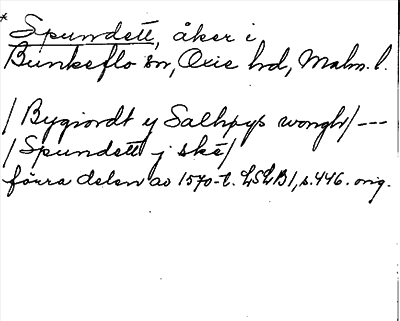 * Spundett, åker i
Bunkeflo sn, Oxie hd, Malm. l.
/ Bygiordt y Salhøys wongh/ ---
/ Spundett j ske/
förra delen av 1570-t. LSLB1, s. 446. orig.